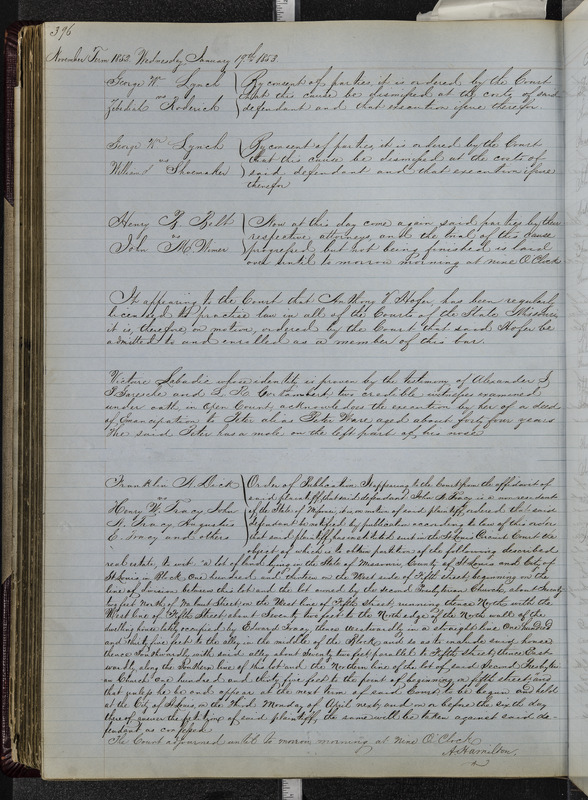 396
November Term 1852. Wednesday January 19th 1853.
George W Lynch
vs
Roderick
By consent of parties it is ordered by the Court
that this cause be dismissed at the costs of said
defendant and that execution issue therefor
George Wm Lynch
vs
William Shoemaker
By consent of parties it is ordered by the Court
that this cause be dismissed at the costs of
said defendant and that execution issue
therefor
Henry R Belt
vs
John M Wimer
Now at this day come again said parties by their
respective attorneys and the trial of this cause
progressed, but not being finished is laid
over until to morrow morning at nine O'Clock
It appearing to the Court that Anthony V Hofer, has been regularly
licensed to practise law in all of the Courts of the State Missouri
it is, therefore on motion, ordered by the Court that said Hofer be
admitted to and enrolled as a member of this bar.
Victoire Labadie whose identity is proven by the testimony of Alexander J
P Garesche and L H G Lambert two credible witnesses examined
under oath in Open Court, acknowledges the execution by her of a deed
of Emancipation to Peter alias Peter Ware aged about forty four years
The said Peter has a mole on the left part of his nose
Franklin A Dick
vs
Henry W. Tracy John
A. Tracy Augustus
E Tracy and others
Order of Publication It appearing to the Court from the affidavit of
said plaintiff that said defendant John A Tracy is a non resident
of the State of Missouri, it is, on motion of said plaintiff, ordered that said
defendant be notified by publication according to law of this order
that said plaintiff, has instituted suit in the St Louis Circuit Court the
object of which is to obtain partition of the following described
real estate, to wit: "a lot of land lying in the State of Missouri, County of St Louis and City of
St Louis in Block One hundred and thirteen on the West side of Fifth street beginning on the
line of division between this lot and the lot owned by the second Presbyterian Church, about Seventy
two feet North of Walnut Street on the West line of Fifth Street, running thence North with the
West line of Fifth Street about Seventy two feet to the North edge of the North wall of the
dwelling house built by Edward Tracy, thence Westwardly in a straight line One hundred
and thirty five feet to the alley in the middle of the Block, and so as to include said house
thence Southwardly with said alley about Seventy two feet parallel to Fifth street, thence East-
wardly along the Southern line of this lot and the Northern line of the lot of said Second Presbyteri-
an Church one hundred and thirty five feet to the point of beginning on fifth street, and
that unless he be and appear at the next term of said Court to be begun and held
at the City of St Louis, on the Third Monday of April next, and on or before the sixth day
thereof answer the petition of said plaintiff, the same will be taken against said de-
fendant, as confessed
The Court adjourned until to morrow morning at nine O'Clock
A Hamilton.